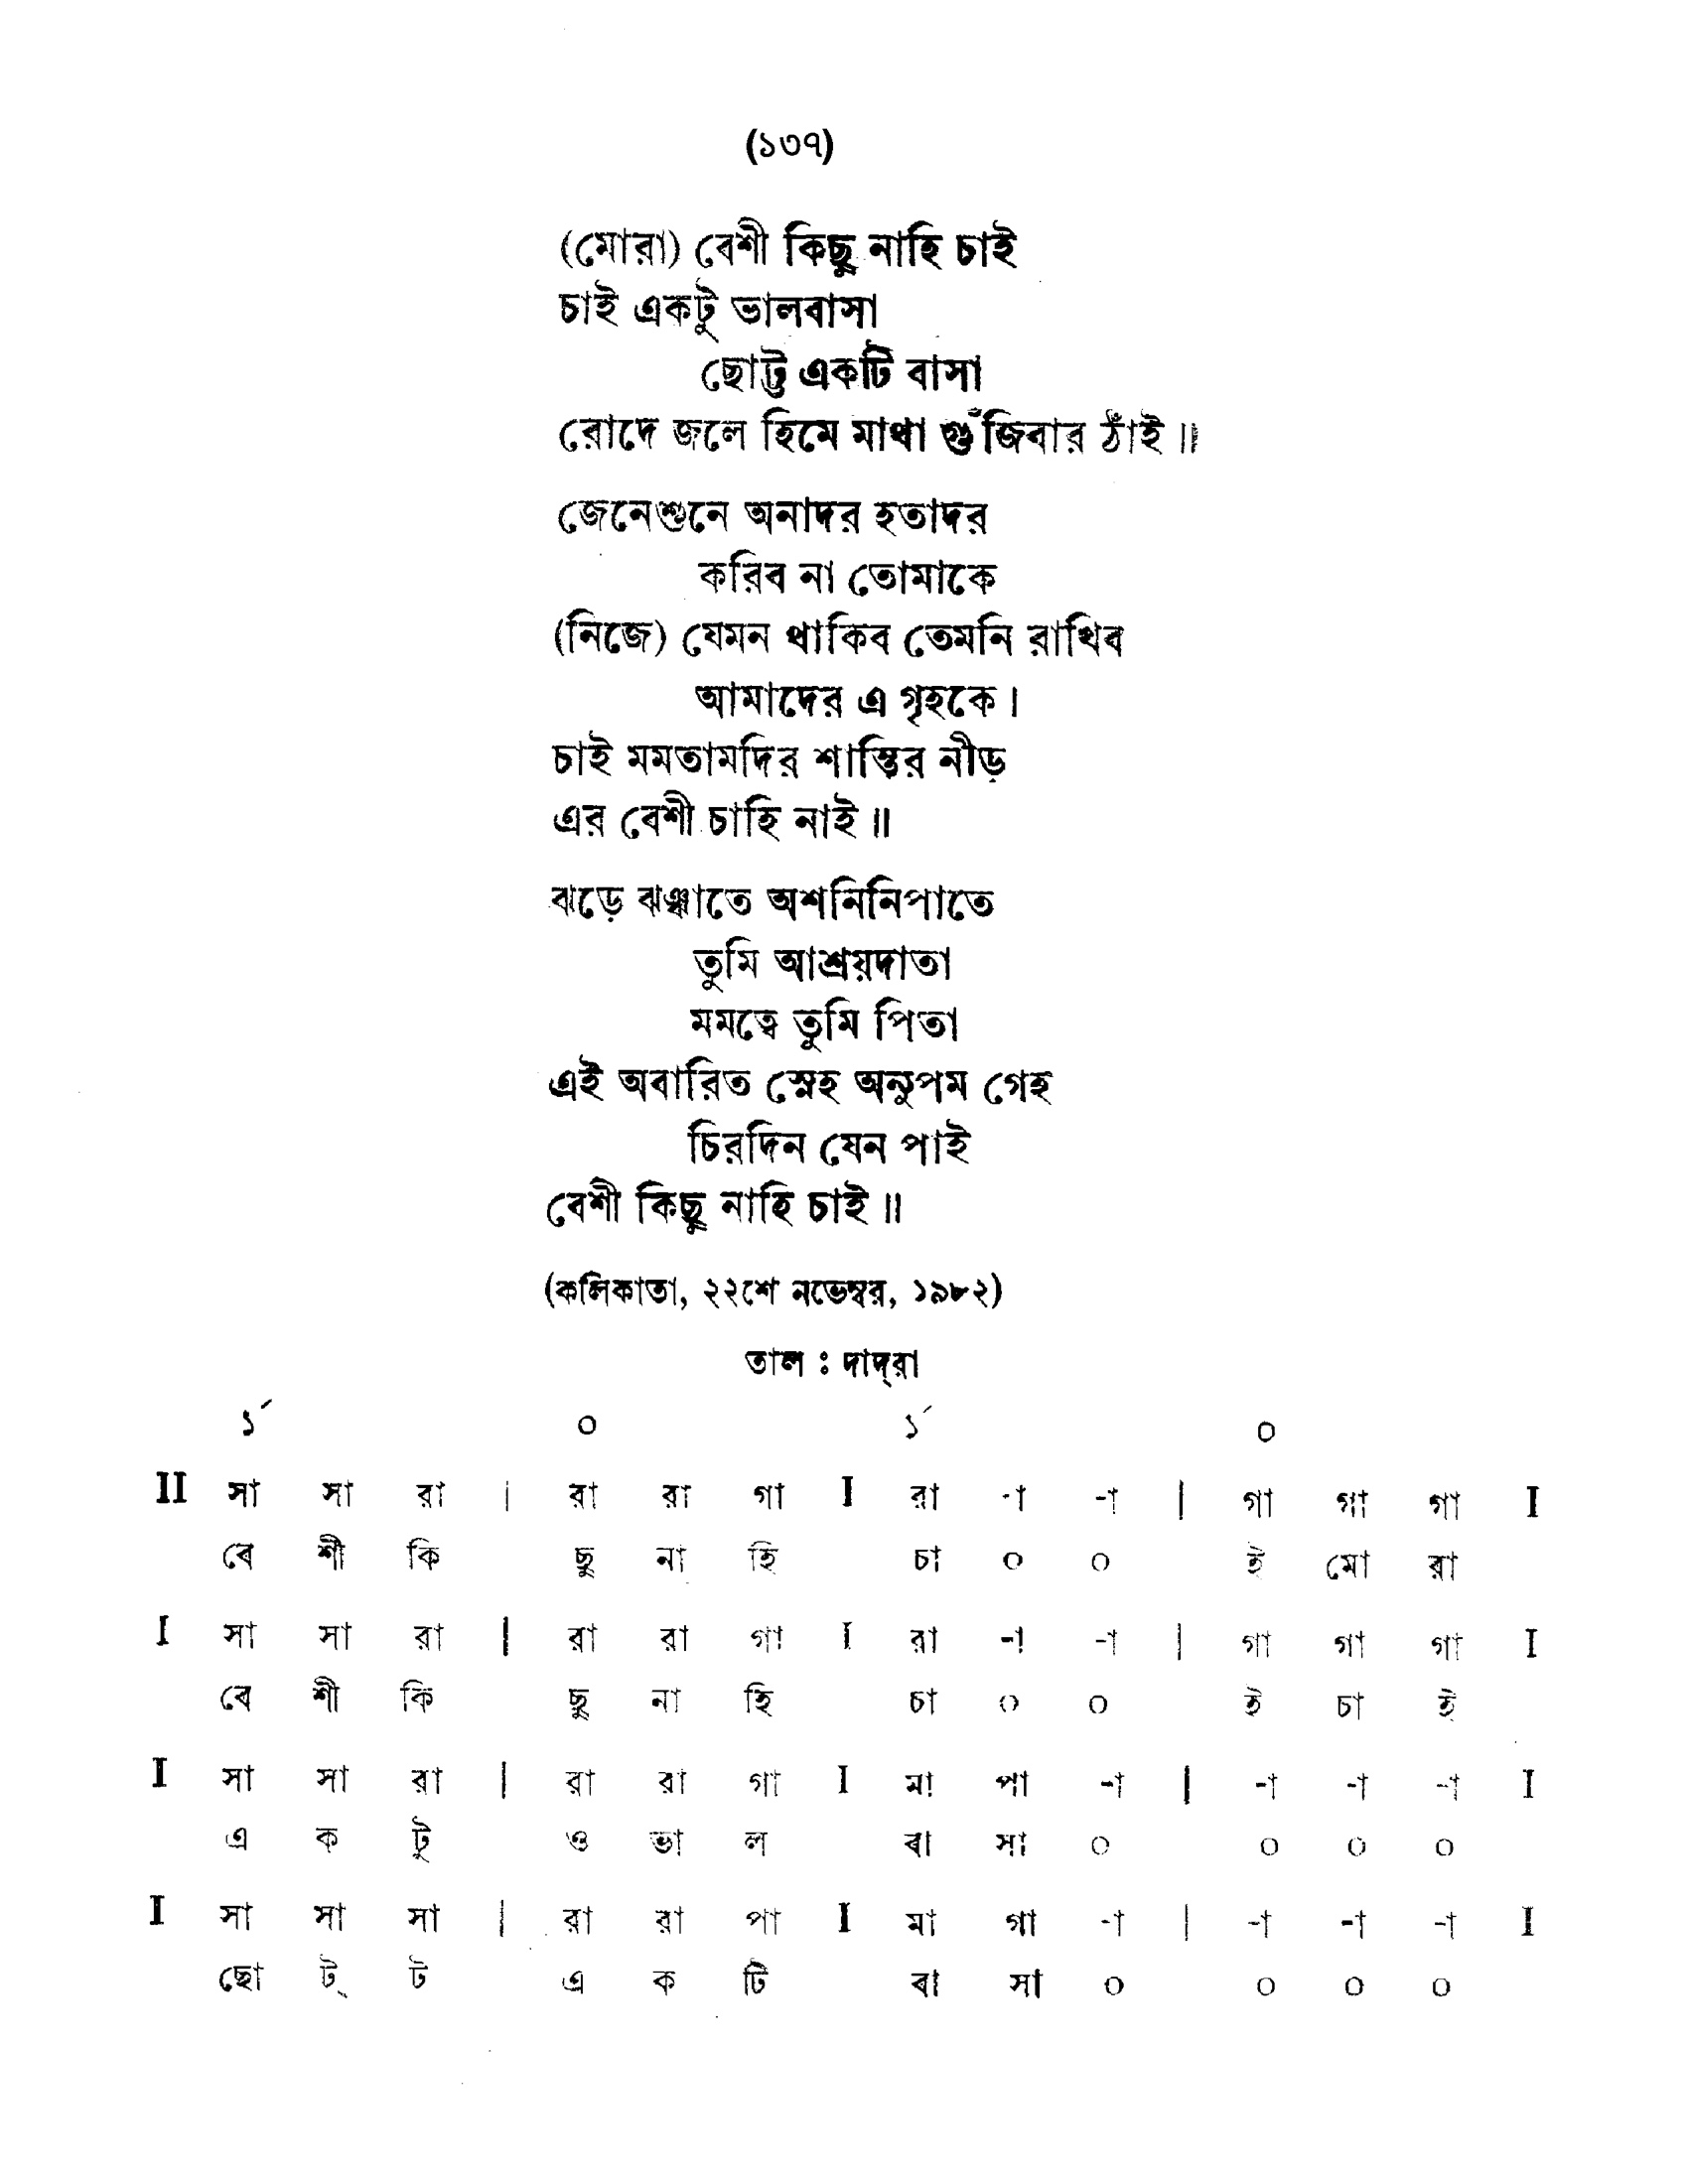 (১৩৭)
(মোরা) বেশী কিছু নাহি চাই
চাই একটু ভালবাসা
ছোট্ট একটি বাসা
রোদে জলে হিমে মাথা গুঁজিবার ঠাঁই॥
জেনেশুনে অনাদর হতাদর
করিব না তোমাকে
(নিজে) যেমন থাকিব তেমনি রাখিব
আমাদের এ গৃহকে।
চাই মমতামদির শান্তির নীড়
এর বেশী চাহি নাই॥
ঝড়ে ঝঞ্ঝাতে অশনিনিপাতে
তুমি আশ্রয়দাতা
মমত্বে তুমি পিতা
এই অবারিত স্নেহ অনুপম গেহ
চিরদিন যেন পাই
বেশী কিছু নাহি চাই॥
(কলিকাতা, ২২শে নভেম্বর, ১৯৮২)
তাল : দাদ্‌রা
১´ ০ ১´ ০
II সা সা রা | রা রা গা I রা -া -া | গা গা গা I
বে শী কি ছু না হি চা ০ ০ ই মো রা
I সা সা রা | রা রা গা I রা -া -া | গা গা গা I
বে শী কি ছু না হি চা ০ ০ ই চা ই
I সা সা রা | রা রা গা I মা পা -া | -া -া -া I
এ ক টু ও ভা ল বা সা ০ ০ ০ ০
I সা সা সা | রা রা পা I মা গা -া | -া -া -া I
ছো ট্ ট এ ক টি বা সা ০ ০ ০ ০